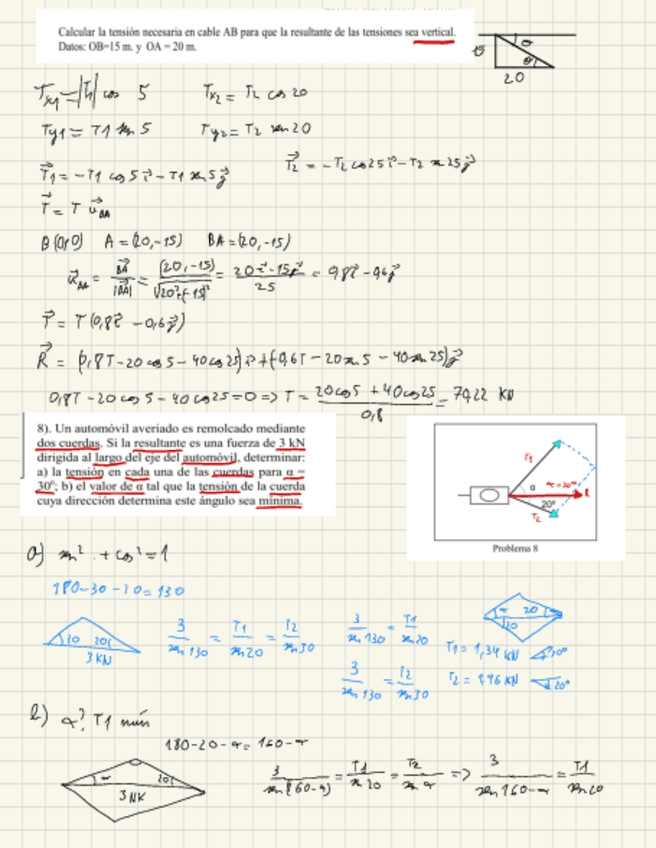 Calcular la tensión necesaria en cable AB para que la resultante de las tensiones sea vertical.
Datos: OB=15 m. y OA = 20 m.
15 θ θ
20
Tx1 = |T1| cos 5 Tx2 = T2 cos 20
Ty1 = T1 sen 5 Ty2 = T2 sen 20
T1 = -T1 cos 5 i - T1 sen 5 j T2 = -T2 cos 25 i - T2 sen 25 j
T = T uBA
B(0,0) A = (20,-15) BA = (20,-15)
uBA = BA/|BA| = (20,-15)/√20²+(-15)² = 20i-15j/25 = 0,8i - 0,6j
T = T(0,8i - 0,6j)
R = (0,8T - 20 cos 5 - 40 cos 25)i + (-0,6T - 20 sen 5 - 40 sen 25)j
0,8T - 20 cos 5 - 40 cos 25 = 0 => T = 20 cos 5 + 40 cos 25 / 0,8 = 70,22 KN
8). Un automóvil averiado es remolcado mediante
dos cuerdas. Si la resultante es una fuerza de 3 kN
dirigida al largo del eje del automóvil, determinar:
a) la tensión en cada una de las cuerdas para α =
30º; b) el valor de α tal que la tensión de la cuerda
cuya dirección determina este ángulo sea mínima.
T1
α α=30º R
20º
T2
Problema 8
a) sen² + cos² = 1
180-30-20=130
30 20
3KN
3/sen 130 = T1/sen 20 = T2/sen 30
3/sen 130 = T1/sen 20
3/sen 130 = T2/sen 30
α 20
20
T1 = 1,34 KN 30º
T2 = 1,96 KN 20º
b) α? T1 mín
180-20-α = 160-α
α 20
3 NK
3/sen(160-α) = T1/sen 20 = T2/sen α => 3/sen 160-α = T1/sen 20